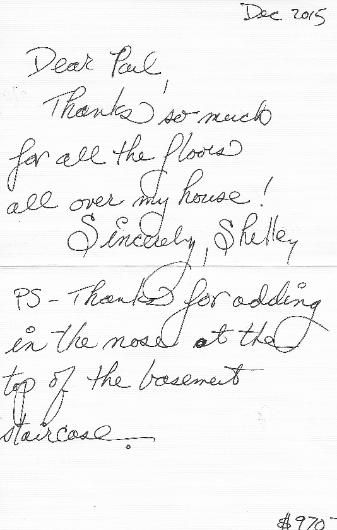 Dec 2015
Dear Paul,
Thanks so much
for all the floors
all over my house!
Sincerely, Shelley
PS - Thanks for adding
in the nose at the
top of the basement
staircase.
$970-